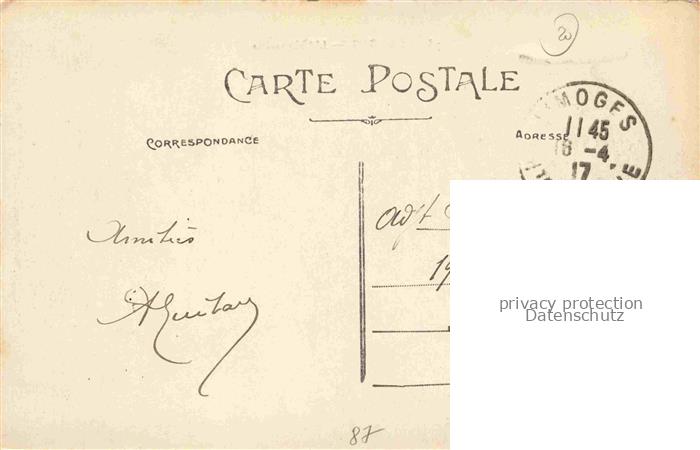 20
CARTE POSTALE
CORRESPONDANCE
ADRESSE
MOGES
11 45
16 -4
17
E
Amitiés
Adjt
19
privacy protection
Datenschutz
87